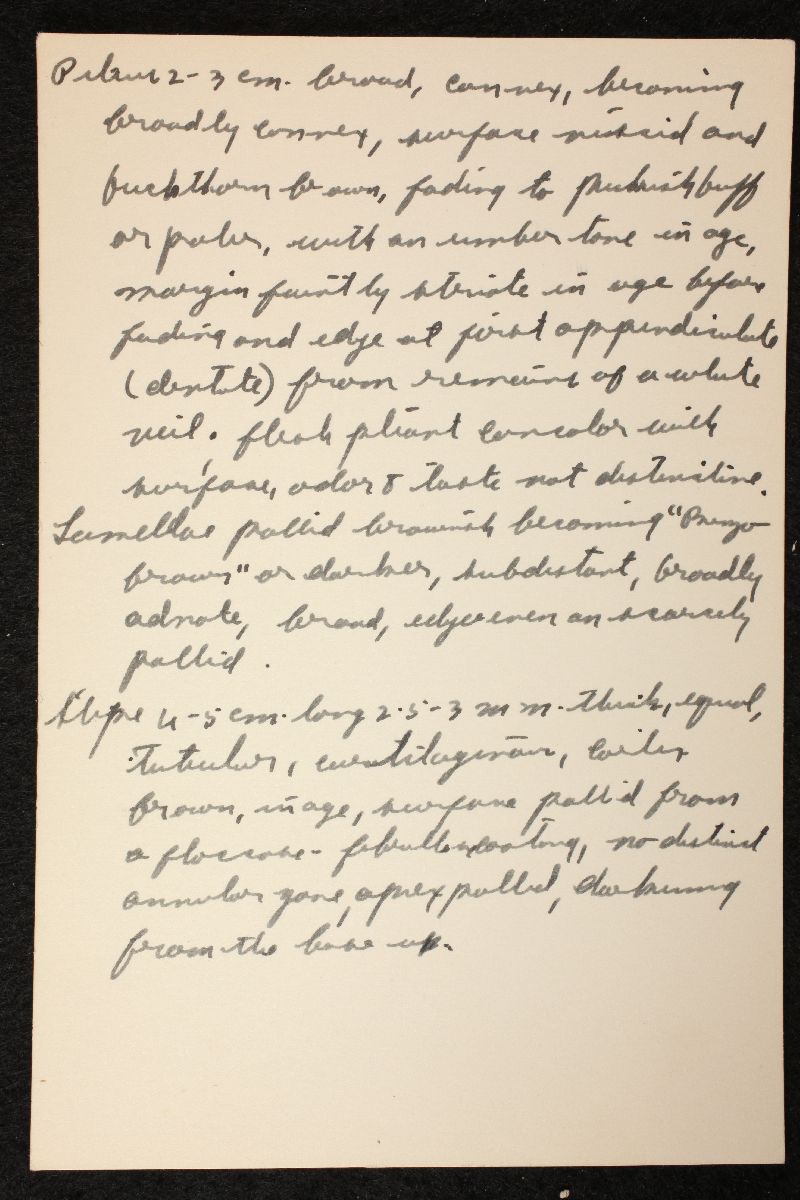 Pileus 2-3 cm. broad, convex, becoming
broadly convex, surface viscid and
buckthorn brown, fading to pinkish buff
or paler, with an umber tone in age,
margin faintly striate in age before
fading and edge at first appendiculate
(dentate) from remains of a white
veil. flesh pliant concolor with
surface, odor & taste not distinctive.
Lamellae pallid brownish becoming "Benzo
brown" or darker, subdistant, broadly
adnate, broad, edges even or scarcely
pallid.
Stipe 4-5 cm. long 2.5-3 mm. thick, equal,
tubular, cartilaginous,
brown, in age, surface pallid from
a floccose-fibrillose coating, no distinct
annular zone, apex pallid, darkening
from the base up.